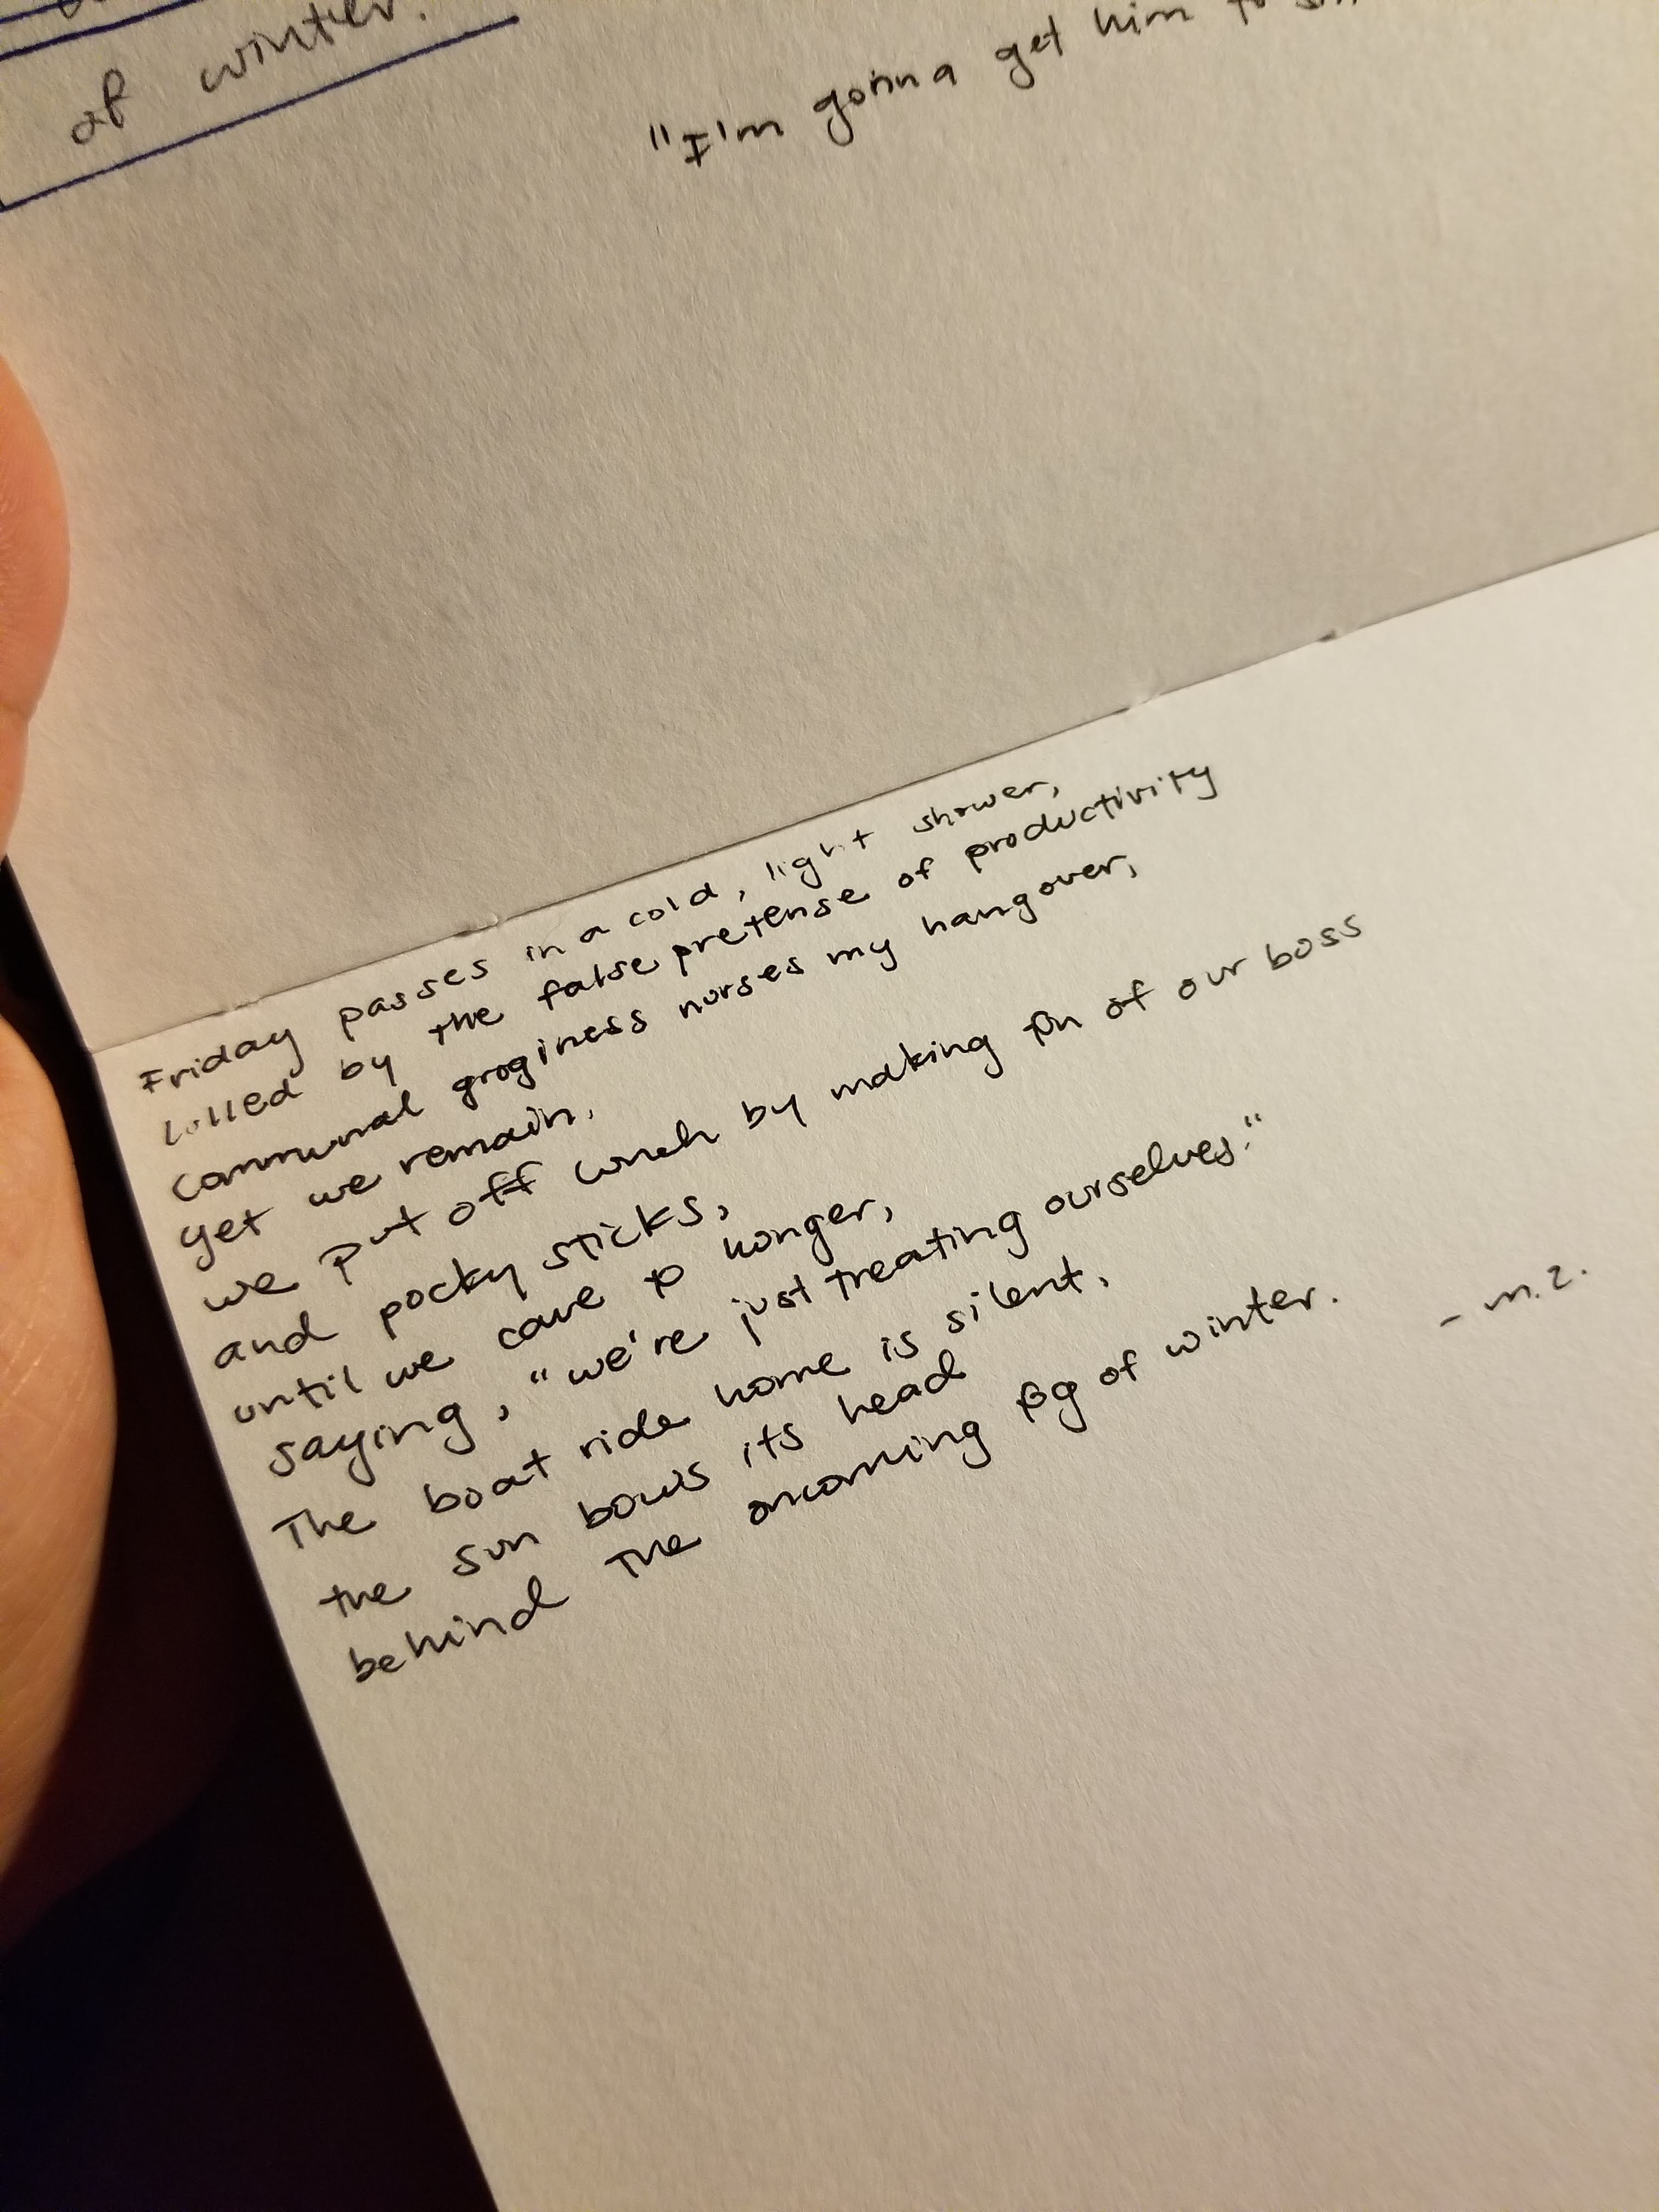 of winter.
"I'm gonna get him to
Friday passes in a cold, light shower,
lulled by the false pretense of productivity
communal groginess nurses my hangover,
yet we remain.
we put off lunch by making fun of our boss
and pocky sticks,
until we cave to hunger,
saying, "we're just treating ourselves."
The boat ride home is silent,
the sun bows its head
behind the oncoming fog of winter.
- m.z.